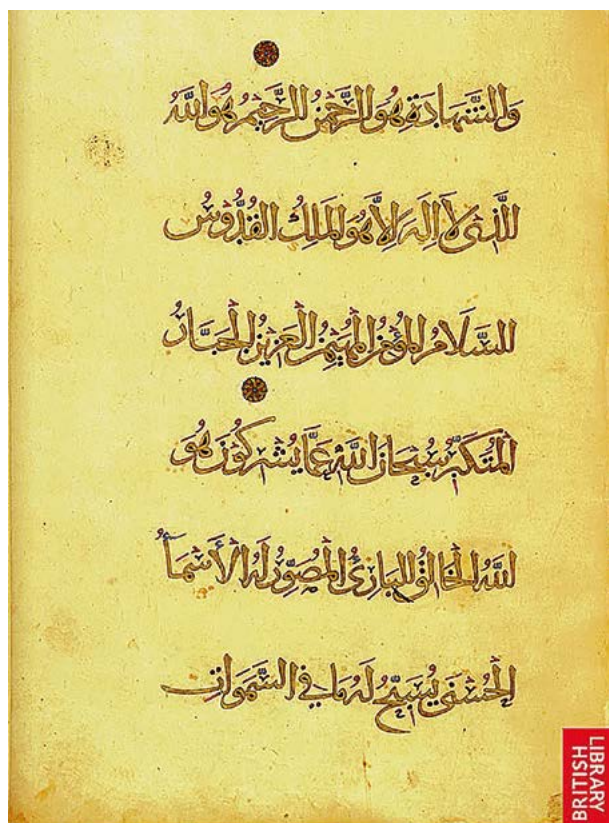 وَالشَّهَادَةِ هُوَ الرَّحْمٰنُ الرَّحِيْمُ هُوَ اللّٰهُ
الَّذِى لَا اِلٰهَ اِلَّا هُوَ الْمَلِكُ الْقُدُّوْسُ
السَّلَامُ الْمُؤْمِنُ الْمُهَيْمِنُ الْعَزِيْزُ الْجَبَّارُ
الْمُتَكَبِّرُ سُبْحَانَ اللّٰهِ عَمَّا يُشْرِكُوْنَ هُوَ
اللّٰهُ الْخَالِقُ الْبَارِئُ الْمُصَوِّرُ لَهُ الْأَسْمَآءُ
الْحُسْنٰى يُسَبِّحُ لَهُ مَا فِى السَّمٰوَاتِ
BRITISH
LIBRARY